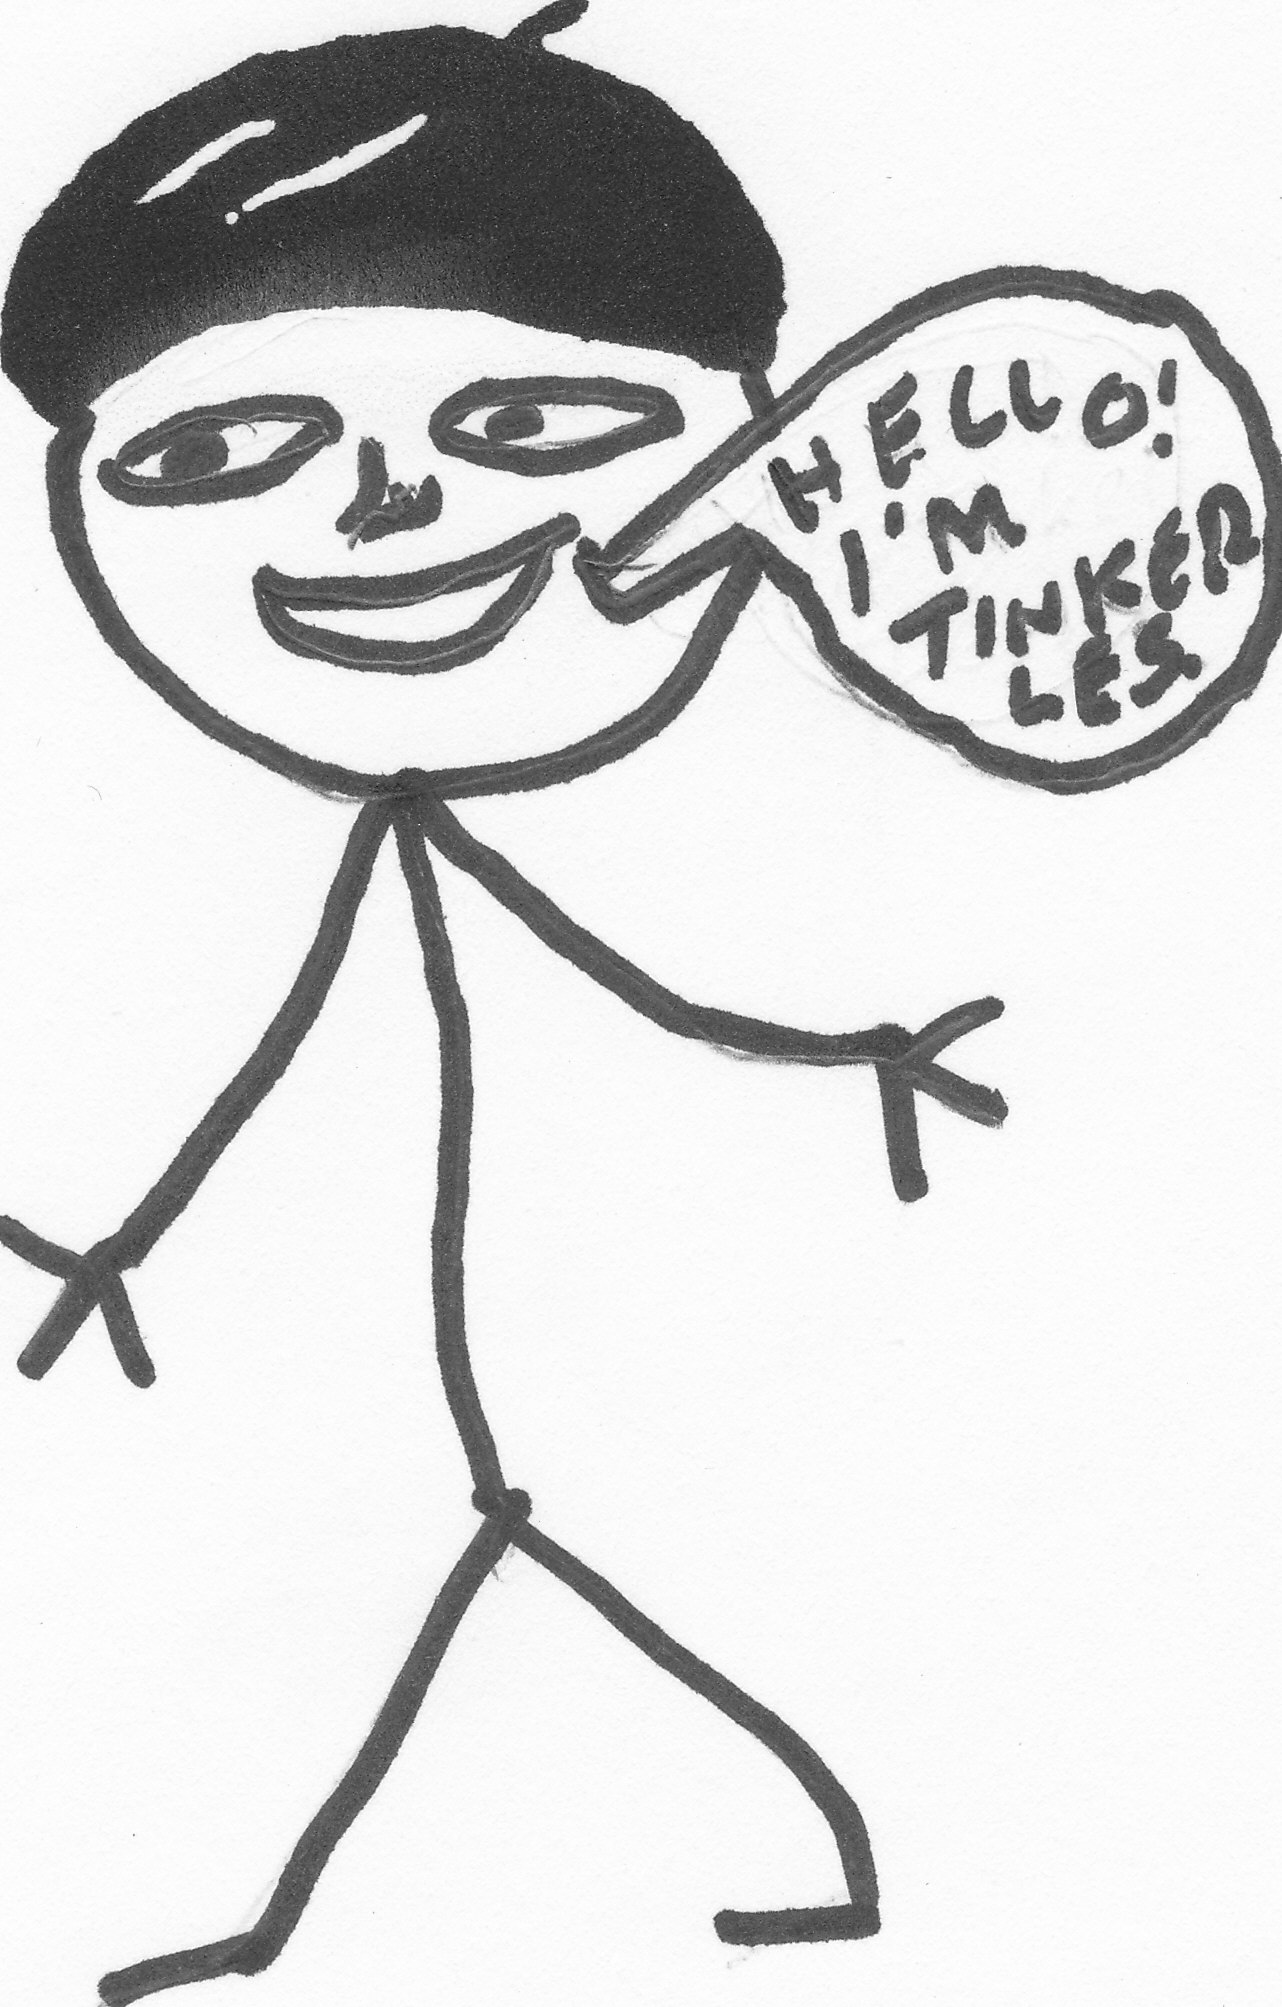 HELLO!
I'M
TINKER
LES.